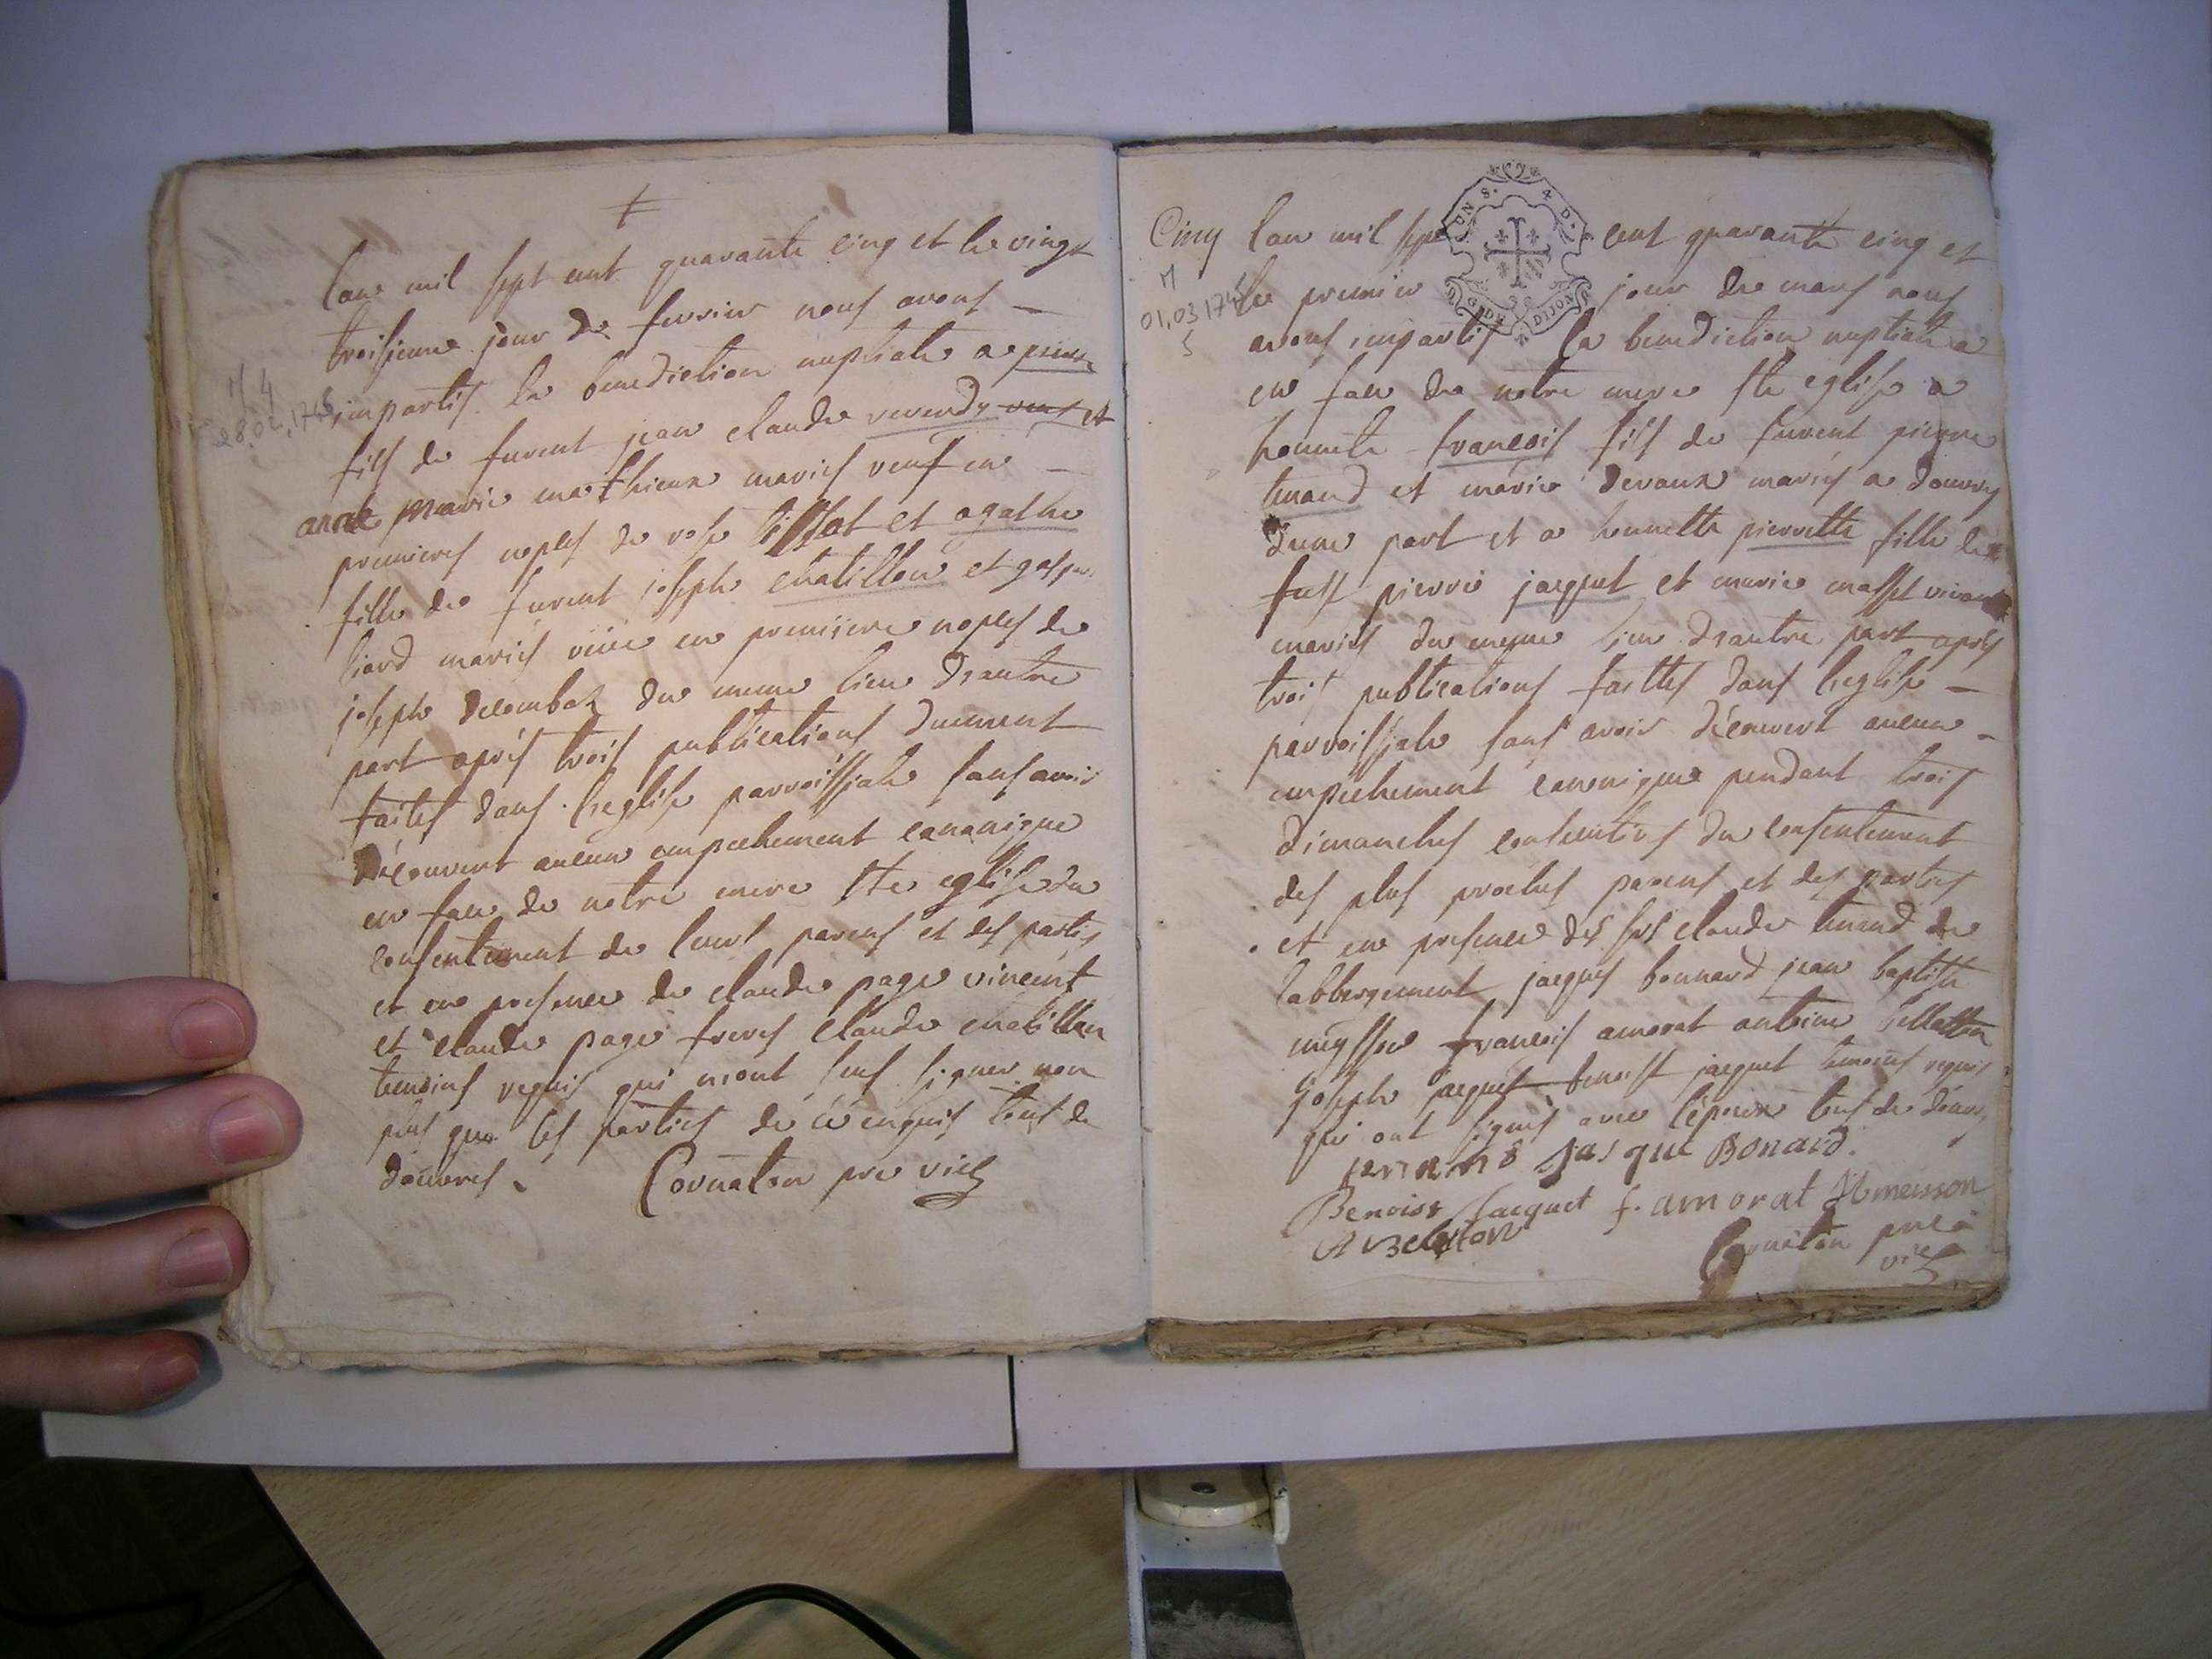 lan mil sept cent quarante cinq et le vingt
troisieme jour de fevrier nous avons
impartis la benediction nuptiale a pierre
M 4
28.02.1745
fils de furent jean claude reverdy et
anne marie mathieux mariés veuf en
premieres nopces de rose et agathe
fille de furent joseph chatillon et
liard mariés vüie en premiere nopces de
joseph decombaz du meme lieu d'autre
part aprés trois publications duement
faites dans l'eglise parroissiale sans avoir
découvert aucun empechement canonique
en face de notre mere Ste eglise du
consentement de leurs parens et des parties
et en presence de claude page vincent
et claude page freres claude chatillon
temoins requis qui n'ont sçus signer non
plus que les parties de ce enquis tous de
douvres. Cornaton pre vic
Cinq lan mil sept cent quarante cinq et
M
01.03.1745
5
le premier jour de mars nous
avons impartis la benediction nuptiale
en face de notre mere Ste eglise a
honnete francois fils de furent pierre
tenand et marie devaux mariés a douvres
dune part et a honnette pierrette fille de
fust pierre jacquet et marie masset vivant
mariés du meyme lieu d'autre part aprés
trois publications faittes dans l'eglise
parroissiale sans avoir découvert aucun
empéchement canonique pendant trois
dimanches consecutifs du consentement
des plus proches parens et des parties
et en presence des srs claude tenand de
labbergement jacques bonnard jean baptiste
francois amorat antoine
joseph jacquet benoist jacquet temoins requis
qui ont signés avec l'époux tous de douvres
Jasque Bonard.
Benoist Jacquet f. amorat
Cornaton pre
vic
UN S. 4 D.
G. DE DIJON